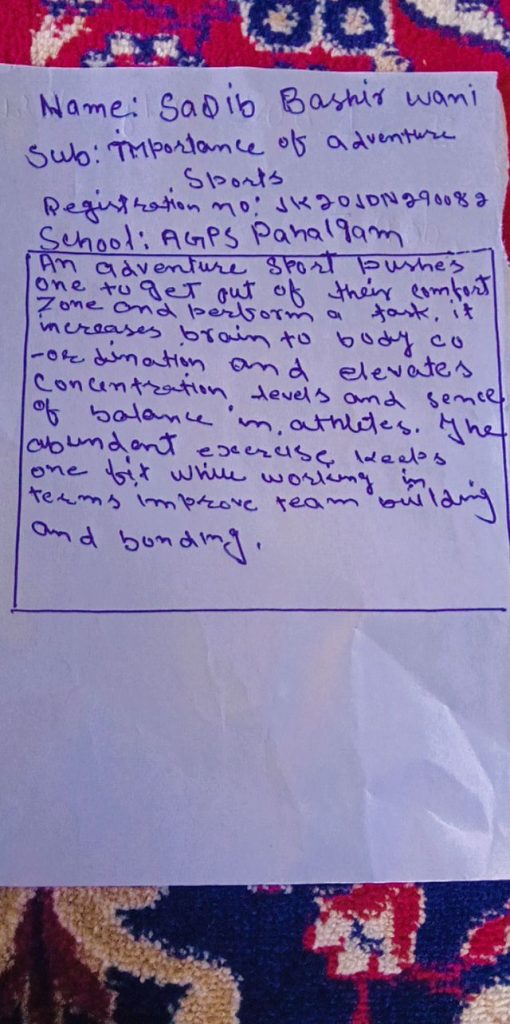 Name: Sadib Bashir wani
Sub: Importance of adventure
Sports
Registration no: JK20JDN290082
School: AGPS Pahalgam
An adventure sport pushes
one to get out of their comfort
zone and perform a task. it
increases brain to body co
-or dination and elevates
concentration levels and sence
of balance in athletes. The
abundant exercise keeps
one fit while working in
terms improve team building
and bonding.